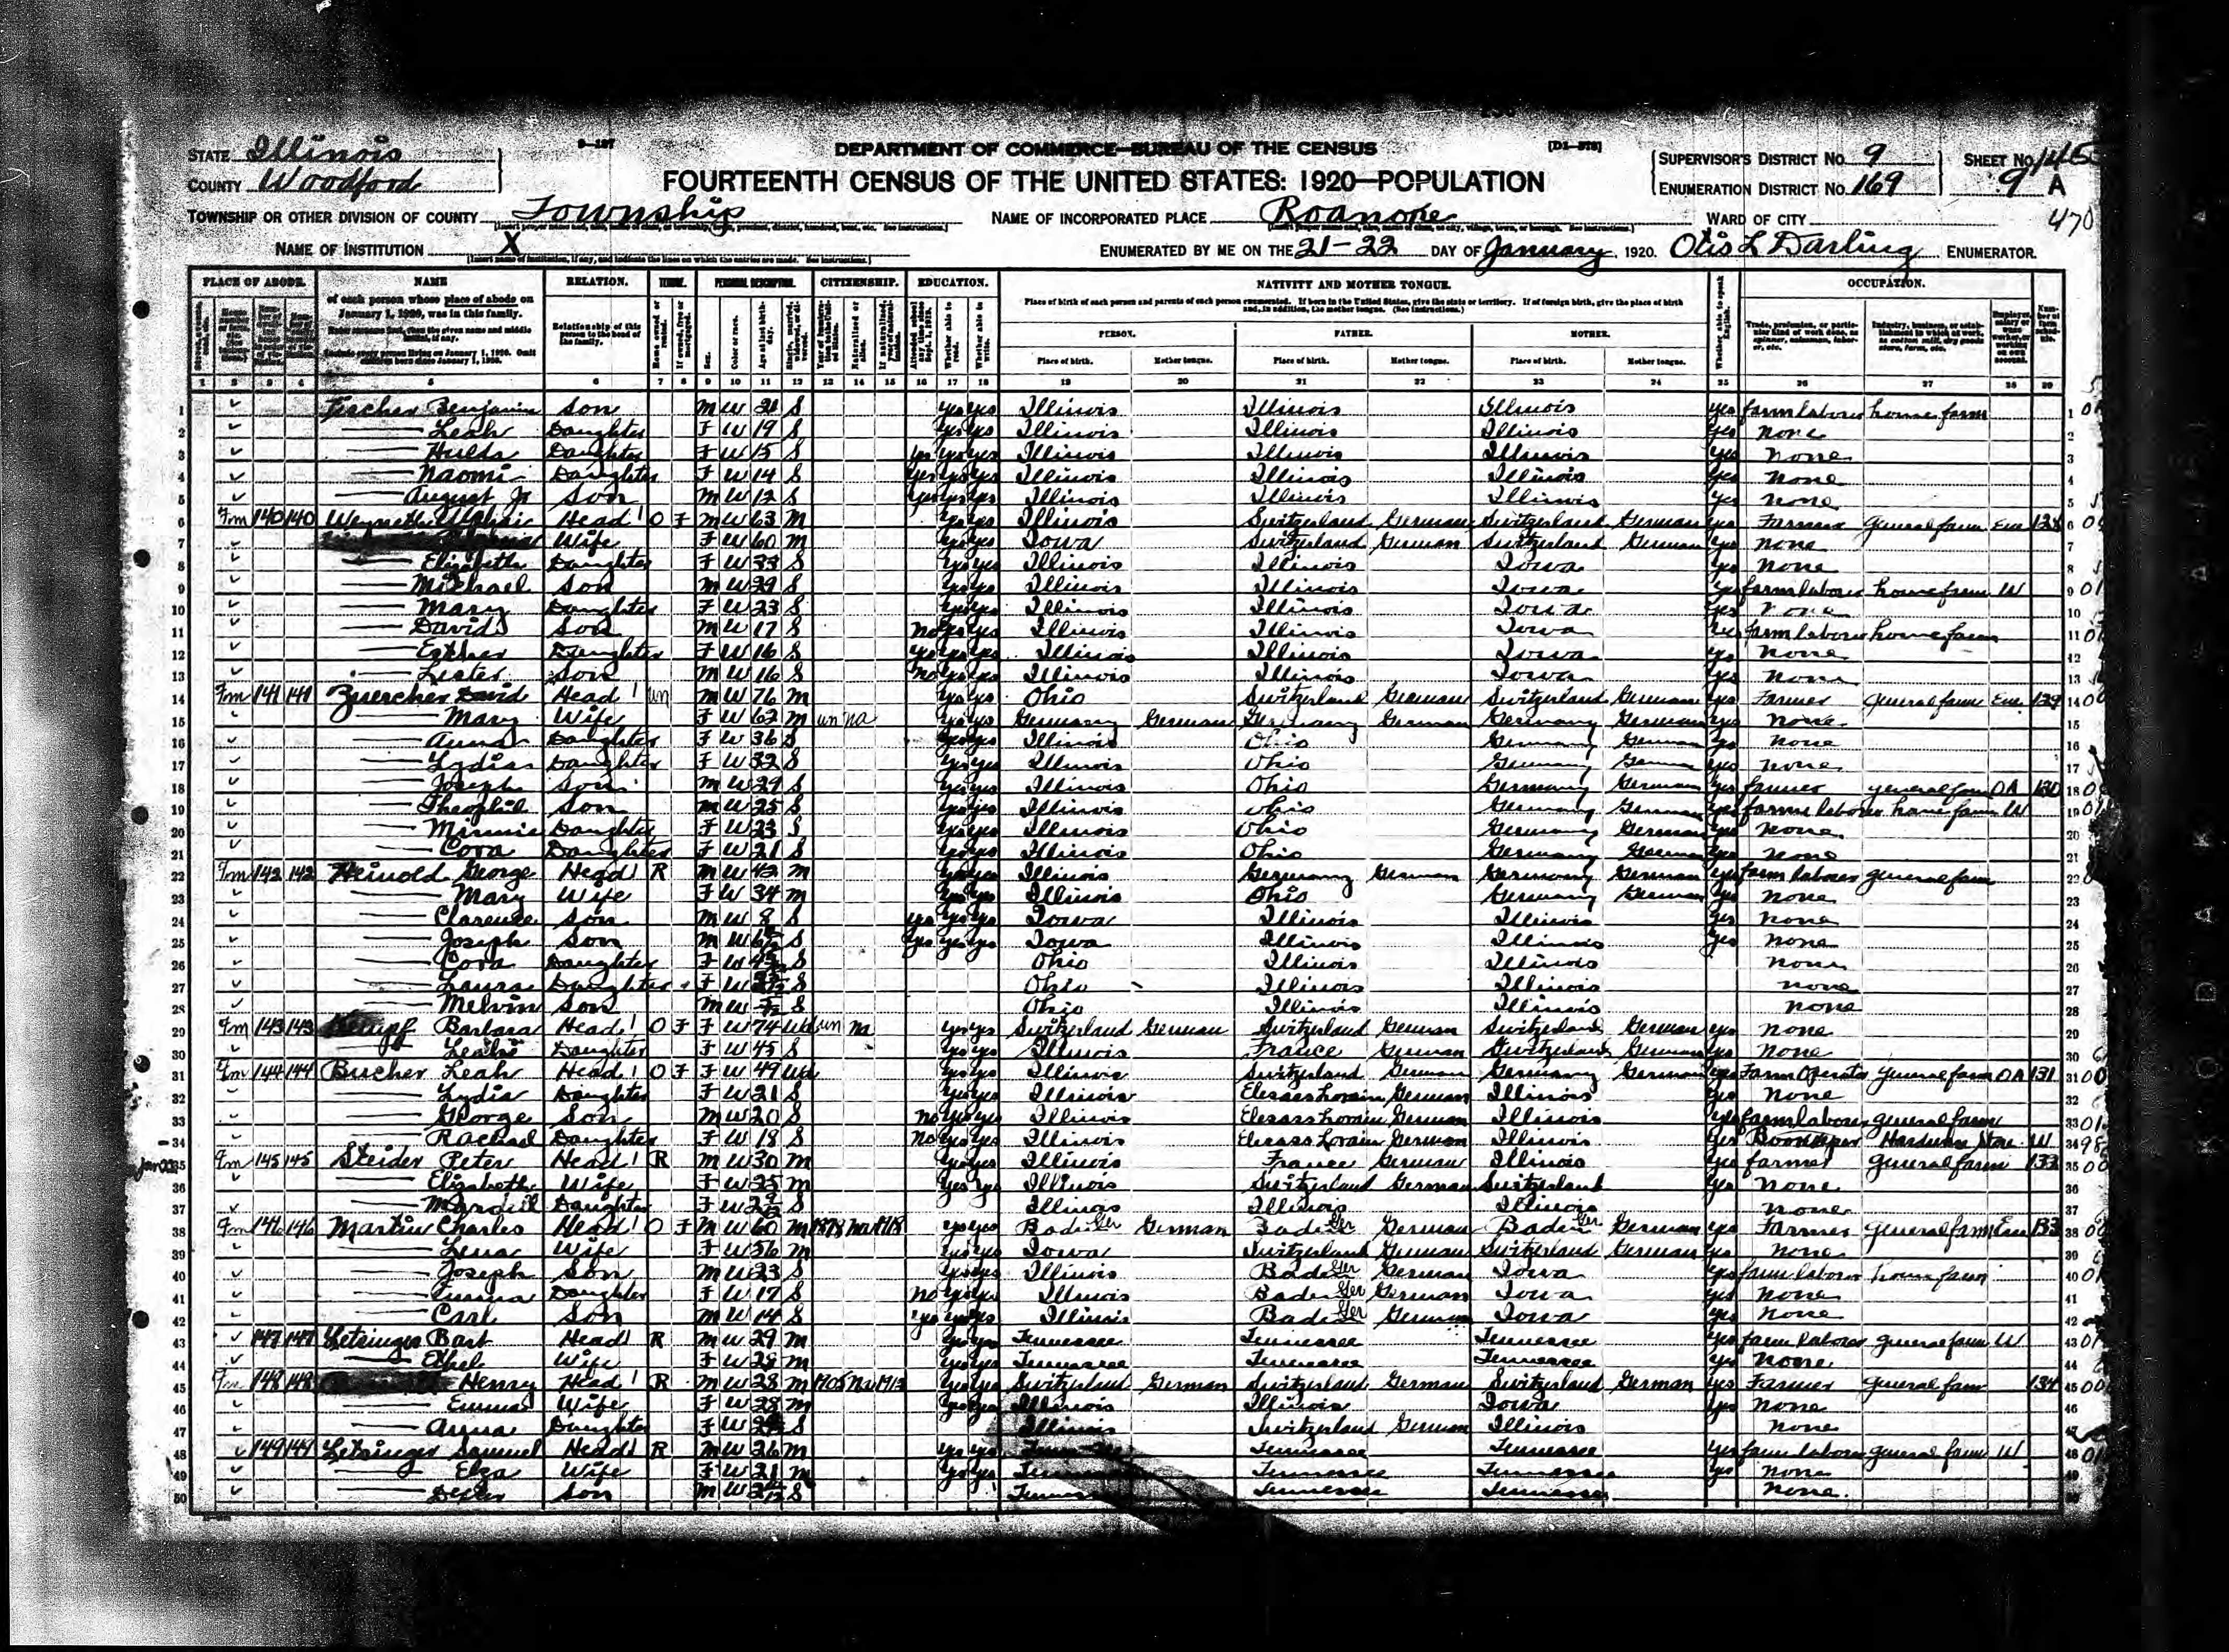 STATE Illinois
9-187
DEPARTMENT OF COMMERCE—BUREAU OF THE CENSUS
[D1-578]
SUPERVISOR'S DISTRICT NO. 9
SHEET NO. 145
COUNTY Woodford
FOURTEENTH CENSUS OF THE UNITED STATES: 1920—POPULATION
ENUMERATION DISTRICT NO. 169
9 A
TOWNSHIP OR OTHER DIVISION OF COUNTY Township
NAME OF INCORPORATED PLACE Roanoke
WARD OF CITY
470
NAME OF INSTITUTION X
ENUMERATED BY ME ON THE 21-22 DAY OF January, 1920. Otis L Darling ENUMERATOR.
PLACE OF ABODE. NAME RELATION. TENURE. PERSONAL DESCRIPTION. CITIZENSHIP. EDUCATION. NATIVITY AND MOTHER TONGUE. OCCUPATION.
of each person whose place of abode on January 1, 1920, was in this family.
Relationship of this person to the head of the family.
Place of birth of each person and parents of each person enumerated. If born in the United States, give the state or territory. If of foreign birth, give the place of birth and, in addition, the mother tongue. (See instructions.)
PERSON. FATHER. MOTHER.
Place of birth. Mother tongue. Place of birth. Mother tongue. Place of birth. Mother tongue.
Whether able to speak English.
1 2 3 4 5 6 7 8 9 10 11 12 13 14 15 16 17 18 19 20 21 22 23 24 25 26 27 28 29
1 Benjamin Son M W S yes yes Illinois Illinois Illinois yes farm laborer home farm 1
2 Leah Daughter F W 19 S yes yes Illinois Illinois Illinois yes none 2
3 Hulda Daughter F W 15 S yes yes yes Illinois Illinois Illinois yes none 3
4 Naomi Daughter F W 14 S yes yes yes Illinois Illinois Illinois yes none 4
5 August Jr Son M W 12 S yes yes yes Illinois Illinois Illinois yes none 5
6 Fm 140 140 Head 1 O F M W 63 M yes yes Illinois Switzerland German Switzerland German yes Farmer general farm Em 128 6
7 Wife F W 60 M yes yes Iowa Switzerland German Switzerland German yes none 7
8 Elizabeth Daughter F W 33 S yes yes Illinois Illinois Iowa yes none 8
9 Michael Son M W 29 S yes yes Illinois Illinois Iowa yes farm laborer home farm W 9
10 Mary Daughter F W 23 S yes yes Illinois Illinois Iowa yes none 10
11 David Son M W 17 S no yes yes Illinois Illinois Iowa yes farm laborer home farm 11
12 Esther Daughter F W 16 S yes yes yes Illinois Illinois Iowa yes none 12
13 Lester Son M W 16 S no yes yes Illinois Illinois Iowa yes none 13
14 Fm 141 141 Zuercher David Head 1 un M W 76 M yes yes Ohio Switzerland German Switzerland German yes Farmer general farm Em 129 14
15 Mary Wife F W 62 M un na yes yes Germany German Germany German Germany German yes none 15
16 Anna Daughter F W 36 S yes yes Illinois Ohio Germany German yes none 16
17 Lydia Daughter F W 32 S yes yes Illinois Ohio Germany German yes none 17
18 Joseph Son M W 29 S yes yes Illinois Ohio Germany German yes farmer general farm OA 130 18
19 Theophil Son M W 25 S yes yes Illinois Ohio Germany German yes farm laborer home farm W 19
20 Minnie Daughter F W 23 S yes yes Illinois Ohio Germany German yes none 20
21 Cora Daughter F W 21 S yes yes Illinois Ohio Germany German yes none 21
22 Fm 142 142 Heinold George Head 1 R M W 42 M yes yes Illinois Germany German Germany German yes farm laborer general farm 22
23 Mary Wife F W 34 M yes yes Illinois Ohio Germany German yes none 23
24 Clarence Son M W 8 S yes yes yes Iowa Illinois Illinois yes none 24
25 Joseph Son M W S yes yes yes Iowa Illinois Illinois yes none 25
26 Cora Daughter F W S Ohio Illinois Illinois none 26
27 Laura Daughter F W S Ohio Illinois Illinois none 27
28 Melvin Son M W S Ohio Illinois Illinois none 28
29 Fm 143 143 Barbara Head 1 O F F W 74 Wd un na yes yes Switzerland German Switzerland German Switzerland German yes none 29
30 Daughter F W 45 S yes yes Illinois France German Switzerland German yes none 30
31 Fm 144 144 Bucher Leah Head 1 O F F W 49 Wd yes yes Illinois Switzerland German Germany German yes Farm Operator general farm OA 131 31
32 Lydia Daughter F W 21 S yes yes Illinois German Illinois yes none 32
33 George Son M W 20 S no yes yes Illinois German Illinois yes farm laborer general farm 33
34 Rachael Daughter F W 18 S no yes yes Illinois German Illinois yes Hardware Store W 34
35 Fm 145 145 Steider Peter Head 1 R M W 30 M yes yes Illinois France German Illinois yes farmer general farm 35
36 Elizabeth Wife F W 25 M yes yes Illinois Switzerland German Switzerland yes none 36
37 Daughter F W S Illinois Illinois Illinois none 37
38 Fm 146 146 Martin Charles Head 1 O F M W 60 M 1878 na yes yes Baden Ger German Baden Ger German Baden Ger German yes Farmer general farm Em 133 38
39 Lena Wife F W 56 M yes yes Iowa Switzerland German Switzerland German yes none 39
40 Joseph Son M W 23 S yes yes Illinois Baden Ger German Iowa yes farm laborer home farm 40
41 Emma Daughter F W 17 S no yes yes Illinois Baden Ger German Iowa yes none 41
42 Carl Son M W 14 S yes yes yes Illinois Baden Ger German Iowa yes none 42
43 147 147 Letsinger Bart Head 1 R M W 29 M yes yes Tennessee Tennessee Tennessee yes farm laborer general farm W 43
44 Ethel Wife F W M yes yes Tennessee Tennessee Tennessee yes none 44
45 Fm 148 148 Henry Head 1 R M W 28 M 1905 Na yes yes Switzerland German Switzerland German Switzerland German yes Farmer general farm 134 45
46 Emma Wife F W 28 M yes yes Illinois Illinois Iowa yes none 46
47 Anna Daughter F W S Illinois Switzerland German Illinois none 47
48 149 149 Letsinger Samuel Head 1 R M W 26 M yes yes Tennessee Tennessee yes farm laborer general farm W 48
49 Elza Wife F W 21 M yes yes Tennessee Tennessee yes none 49
50 Son M W S Tennessee Tennessee none 50
KODAK